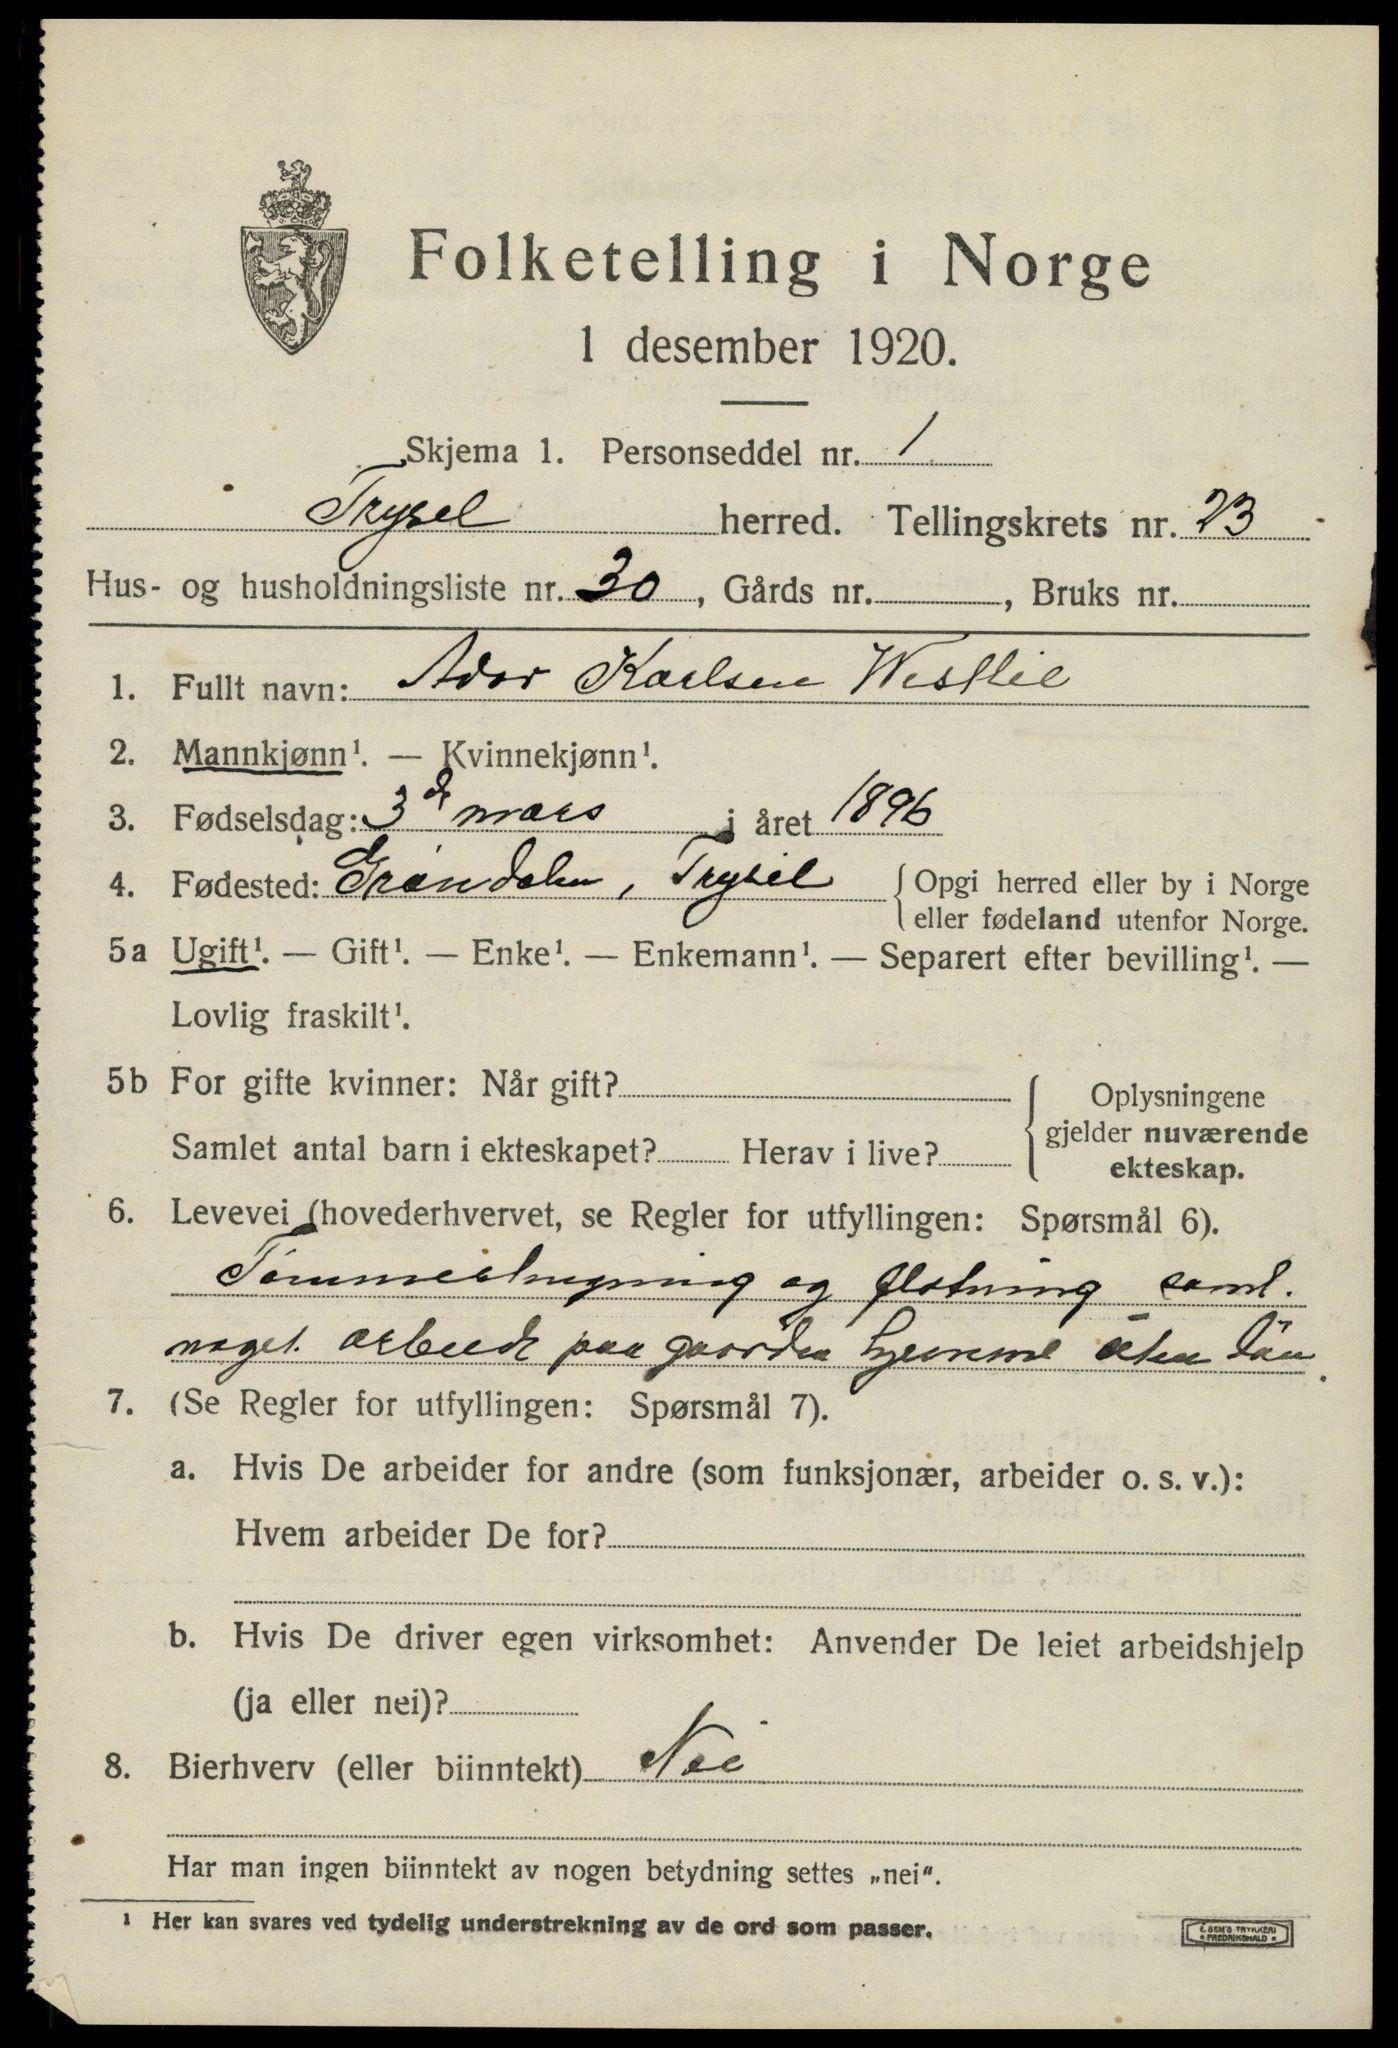 Folketelling i Norge
1 desember 1920.
Skjema 1. Personseddel nr. 1
Trysil herred. Tellingskrets nr. 23
Hus- og husholdningsliste nr. 30, Gårds nr. , Bruks nr.
1. Fullt navn: Ador Karlsen Westlie
2. Mannkjønn¹. — Kvinnekjønn¹.
3. Fødselsdag: 3de mars i året 1896
4. Fødested: Grøndalen, Trysil { Opgi herred eller by i Norge
eller fødeland utenfor Norge.
5a Ugift¹. — Gift¹. — Enke¹. — Enkemann¹. — Separert efter bevilling¹. —
Lovlig fraskilt¹.
5b For gifte kvinner: Når gift?
Samlet antal barn i ekteskapet? Herav i live?
Oplysningene
gjelder nuværende
ekteskap.
6. Levevei (hovederhvervet, se Regler for utfyllingen: Spørsmål 6).
Tømmerhugning og fløtning samt.
noget arbeide paa gaarden hjemme uten løn.
7. (Se Regler for utfyllingen: Spørsmål 7).
a. Hvis De arbeider for andre (som funksjonær, arbeider o. s. v.):
Hvem arbeider De for?
b. Hvis De driver egen virksomhet: Anvender De leiet arbeidshjelp
(ja eller nei)?
8. Bierhverv (eller biinntekt) Nei
Har man ingen biinntekt av nogen betydning settes „nei“.
¹ Her kan svares ved tydelig understrekning av de ord som passer.
E. SEM'S TRYKKERI
• FREDRIKSHALD •